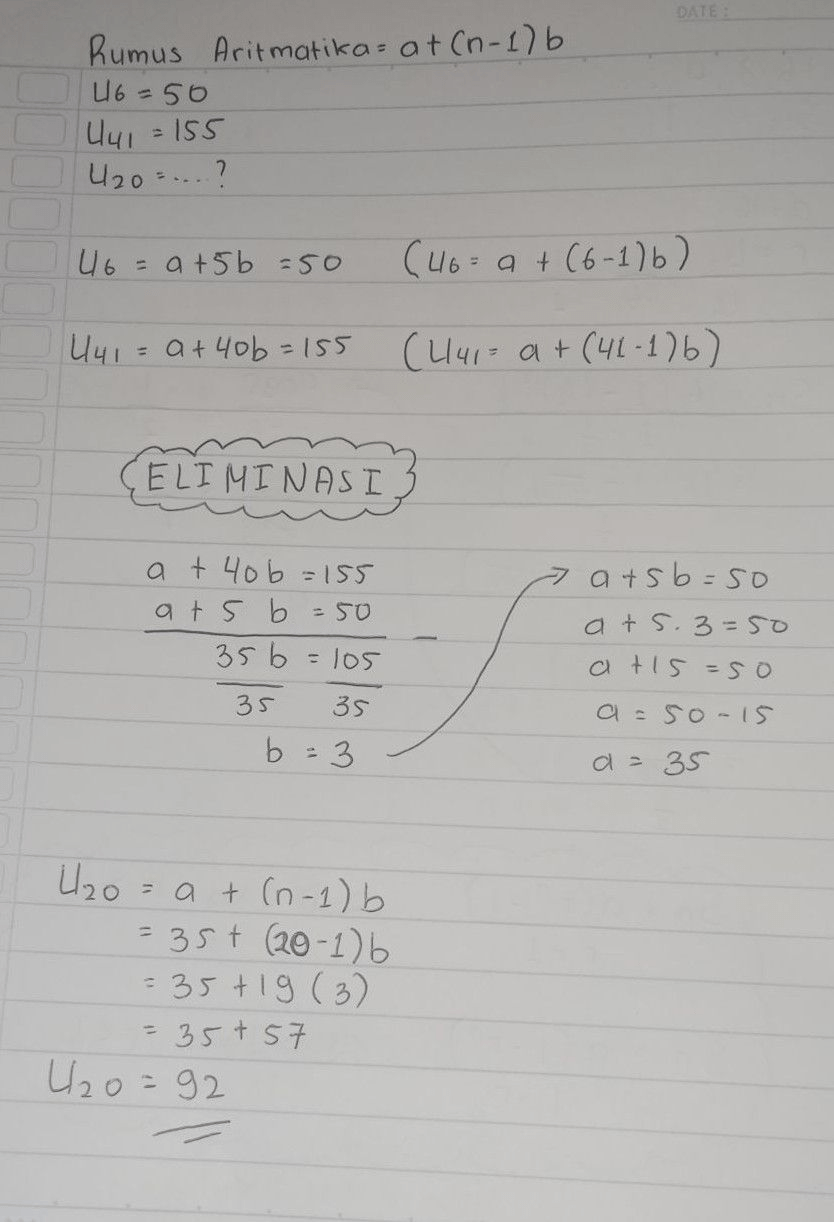 DATE :
Rumus Aritmatika = a + (n-1) b
U6 = 50
U41 = 155
U20 = .... ?
U6 = a + 5b = 50 (U6 = a + (6-1)b)
U41 = a + 40b = 155 (U41 = a + (41-1)b)
ELIMINASI
a + 40b = 155
a + 5 b = 50
35 b = 105 -
35 35
b = 3
a + 5b = 50
a + 5.3 = 50
a + 15 = 50
a = 50 - 15
a = 35
U20 = a + (n-1) b
= 35 + (20-1)b
= 35 + 19 (3)
= 35 + 57
U20 = 92